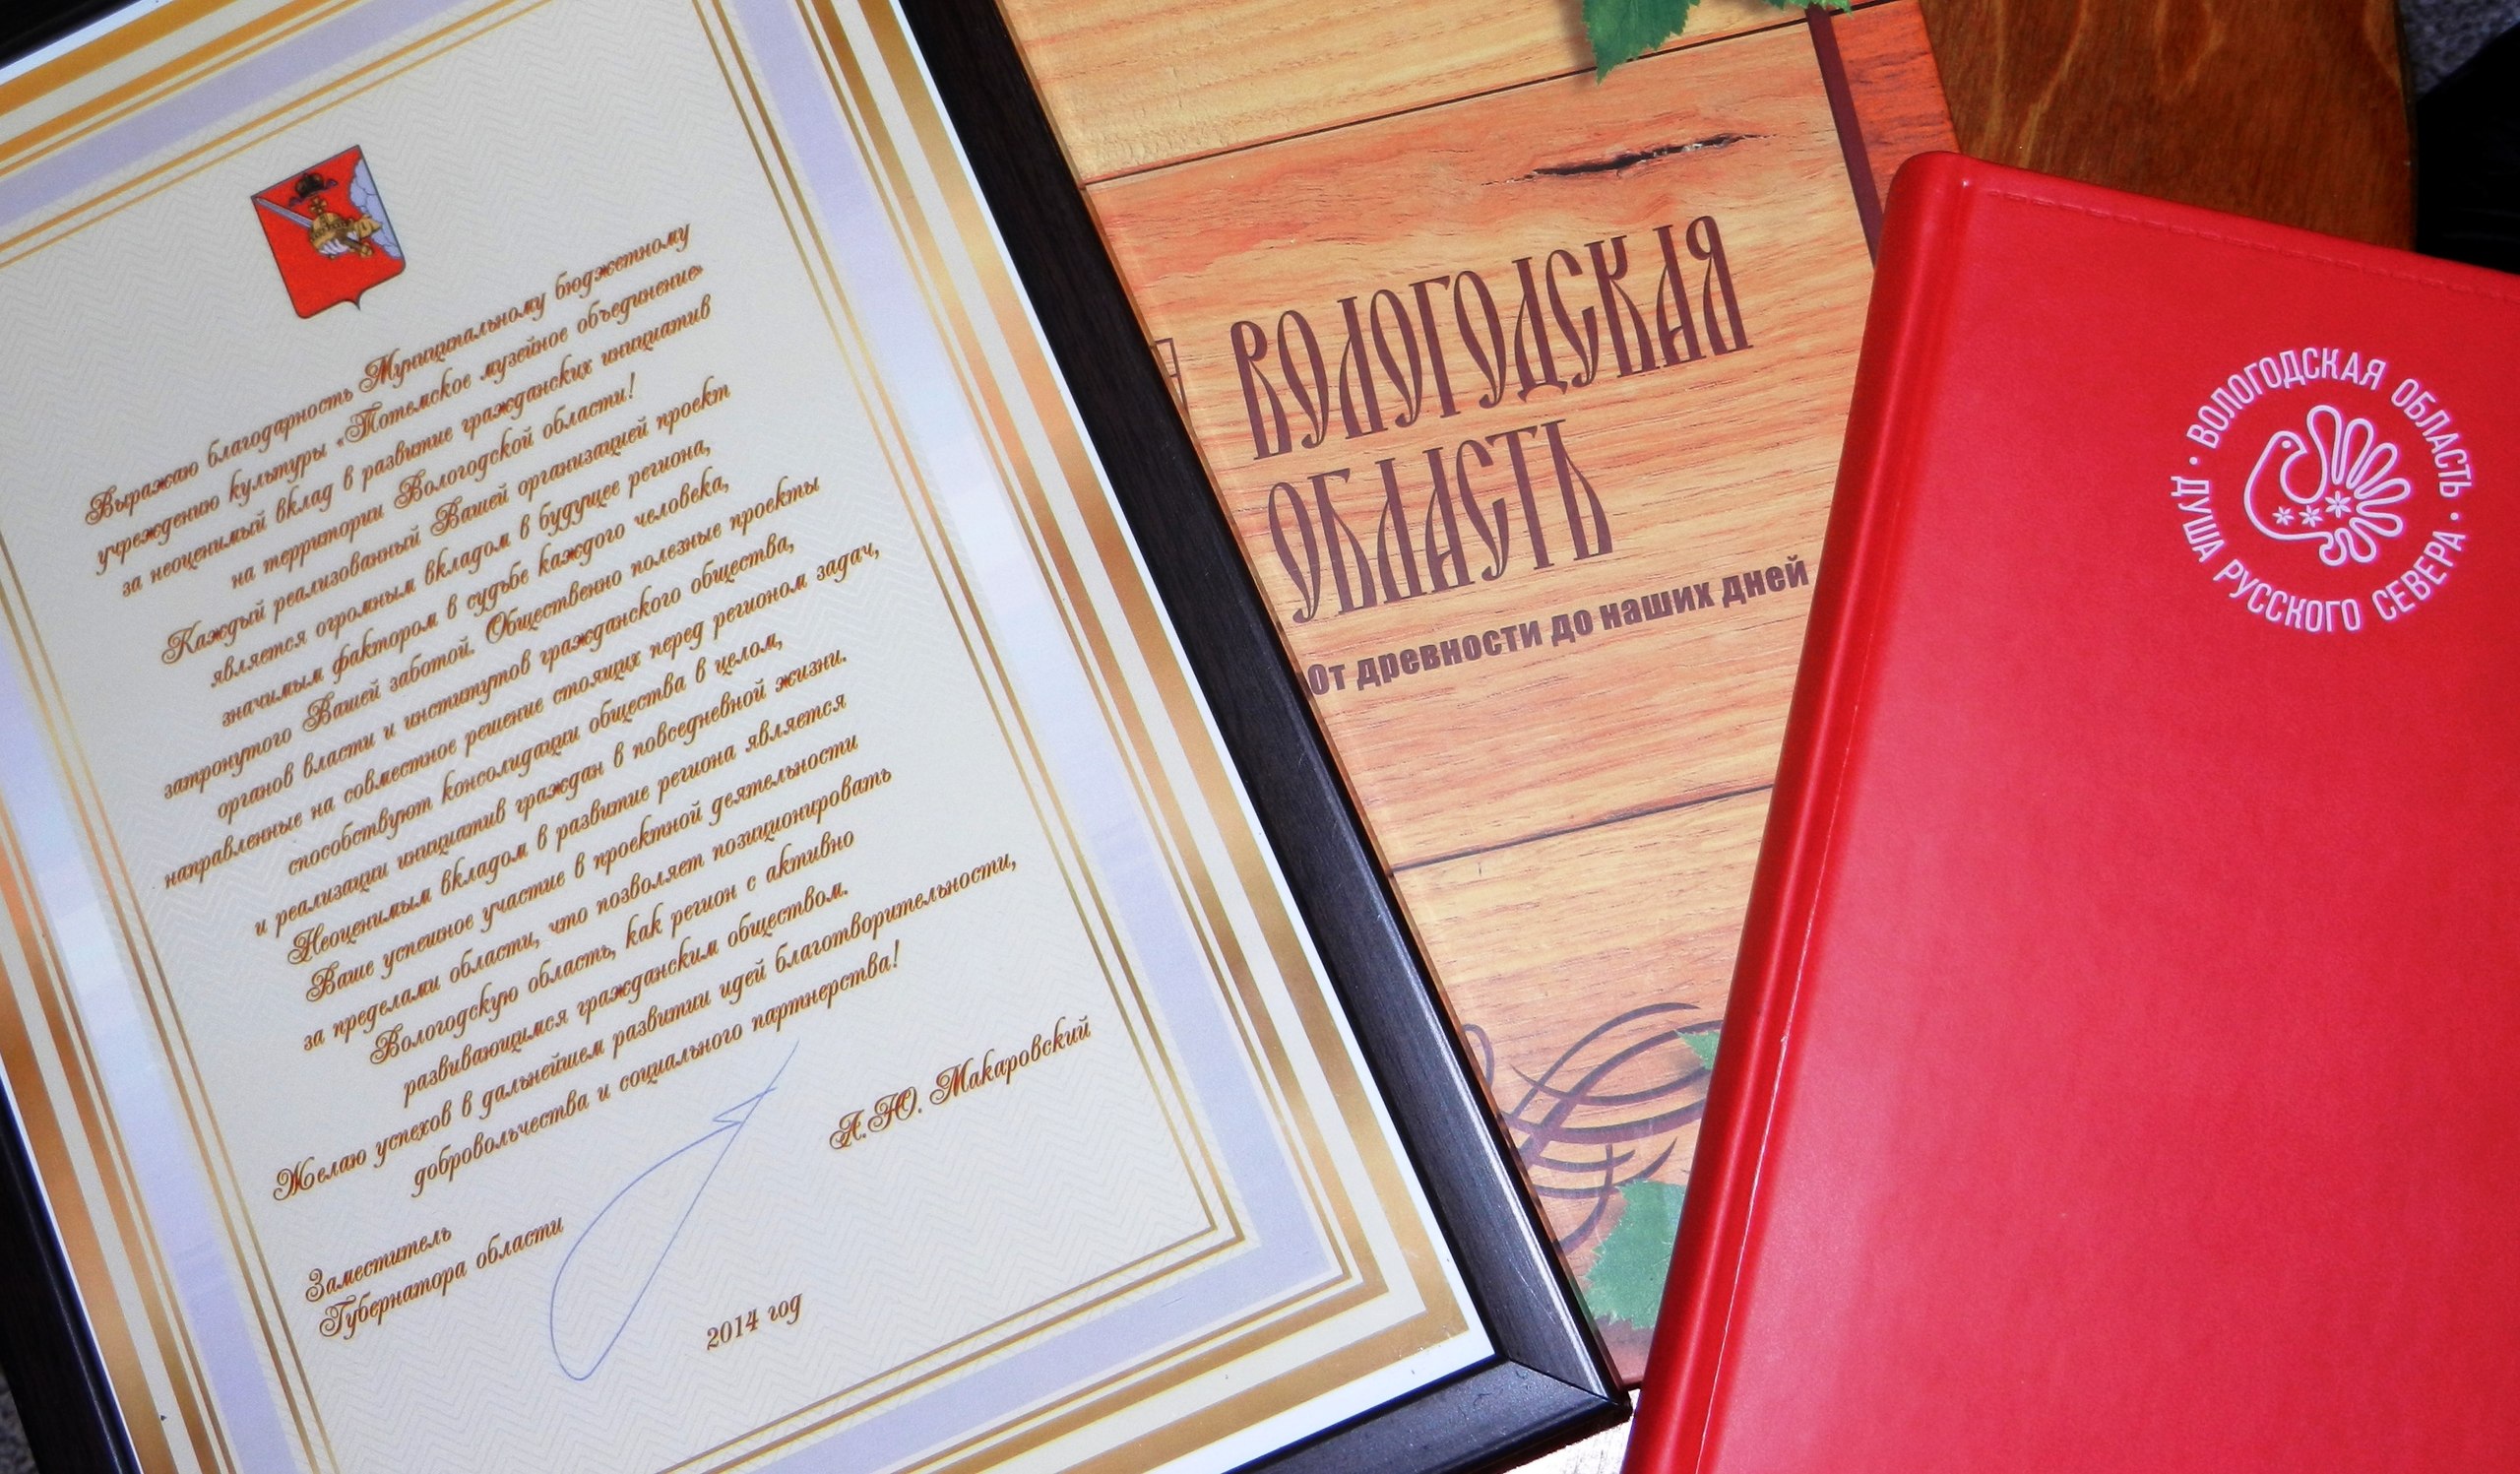 Выражаю благодарность Муниципальному бюджетному
учреждению культуры «Тотемское музейное объединение»
за неоценимый вклад в развитие гражданских инициатив
на территории Вологодской области!
Каждый реализованный Вашей организацией проект
является огромным вкладом в будущее региона,
значимым фактором в судьбе каждого человека,
затронутого Вашей заботой. Общественно полезные проекты
органов власти и институтов гражданского общества,
направленные на совместное решение стоящих перед регионом задач,
способствуют консолидации общества в целом,
и реализации инициатив граждан в повседневной жизни.
Неоценимым вкладом в развитие региона является
Ваше успешное участие в проектной деятельности
за пределами области, что позволяет позиционировать
Вологодскую область, как регион с активно
развивающимся гражданским обществом.
Желаю успехов в дальнейшем развитии идей благотворительности,
добровольчества и социального партнерства!
Заместитель
Губернатора области
А.Ю. Макаровский
2014 год
ВОЛОГОДСКАЯ
ОБЛАСТЬ
От древности до наших дней
ВОЛОГОДСКАЯ ОБЛАСТЬ
• ДУША РУССКОГО СЕВЕРА •